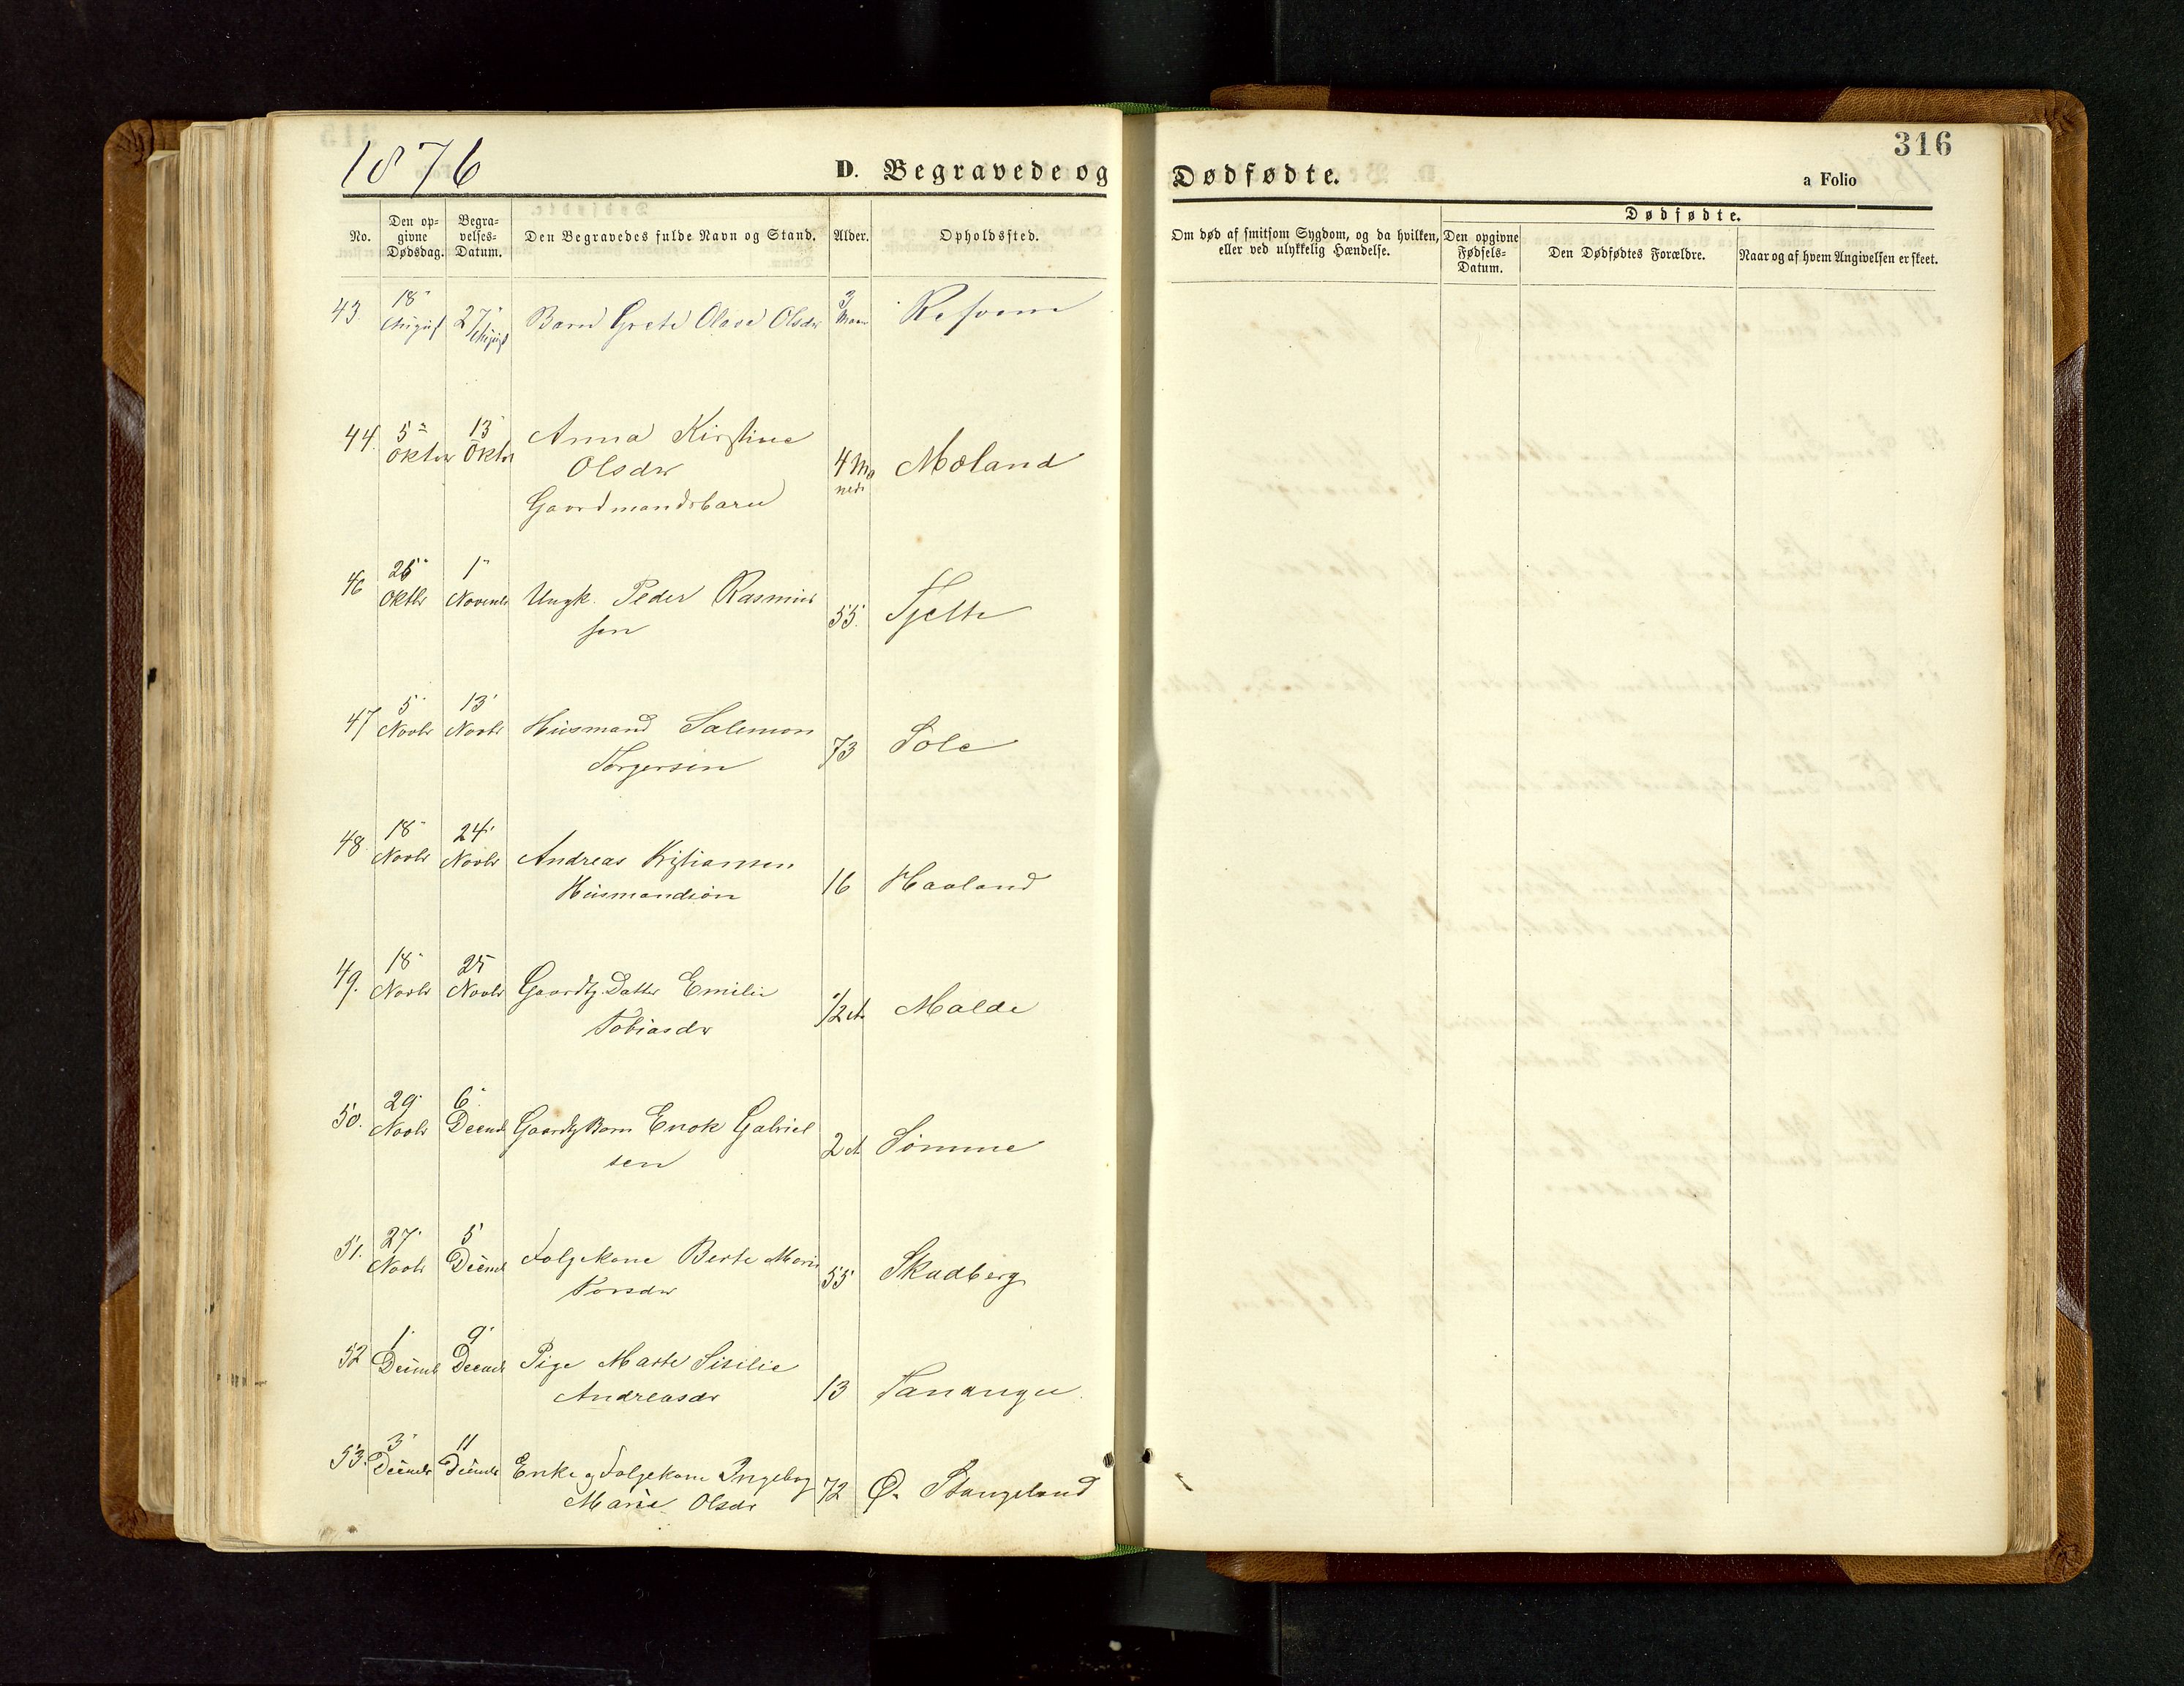 1876
D. Begravede og Dødfødte.
a Folio
316
No.
Den opgivne Dødsdag.
Begravelses-Datum.
Den Begravedes fulde Navn og Stand.
Alder.
Opholdssted.
Om død af smitsom Sygdom, og da hvilken,
eller ved ulykkelig Hændelse.
Dødfødte.
Den opgivne Fødsels-Datum.
Den Dødfødtes Forældre.
Naar og af hvem Angivelsen er skeet.
43. 18 August 27 August Barn Grete Olave Olsdr 3 Refsnes
44. 5 Oktbr 13 Oktbr Anna Kirstine
Olsdr 4 Maaneder Moland
Gaardmandsbarn
46 26 Oktbr 1 Novembr Ungk. Peder Rasmus
sen 55. Tjelte
47 5 Novbr 13 Novbr Husmand Salemon
Torgersen 73 Sole
48. 18 Novbr 24 Novbr Andreas Kristiansen
Husmandsøn 16 Haaland
49. 18 Novbr 25 Novbr Gaardbg. Datter Emilie
Tobiasdr 1/2 A Malde
50. 29 Novbr 6 Decmb Gaardbg Barn Enok Gabriel
sen 2 A Sømme
51. 27 Novbr 5 Decmb Folgekone Berte Marie
Torsdr 55 Skadberg
52 1 Decmb 9 Decmb Pige Marte Sisilie
Andreasdr 13 Tananger
53. 3 Decmbr 11 Decmbr Enke og Folgekone Ingeborg
Marie Olsdr 72 Ø. Stangeland